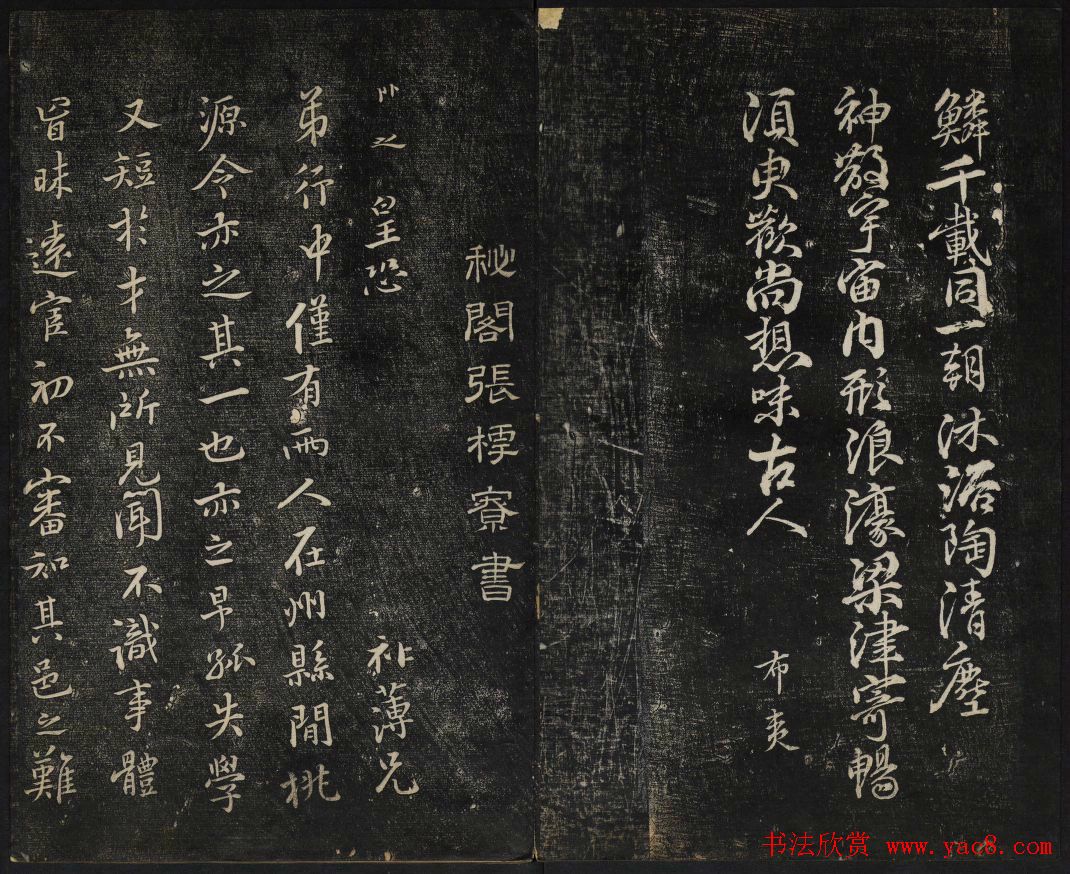 鱗千載同一朝沐浴陶清塵
神散宇宙內形浪濠梁津寄暢
須臾歡尚想味古人 布夷
秘閣張樗寮書
之 皇恐 祚薄兄
弟行中僅有兩人在州縣間桃
源令亦之其一也亦之早孤失學
又短於才無所見聞不識事體
冒昧遠宦初不審知其邑之難
书法欣赏 www.yac8.com